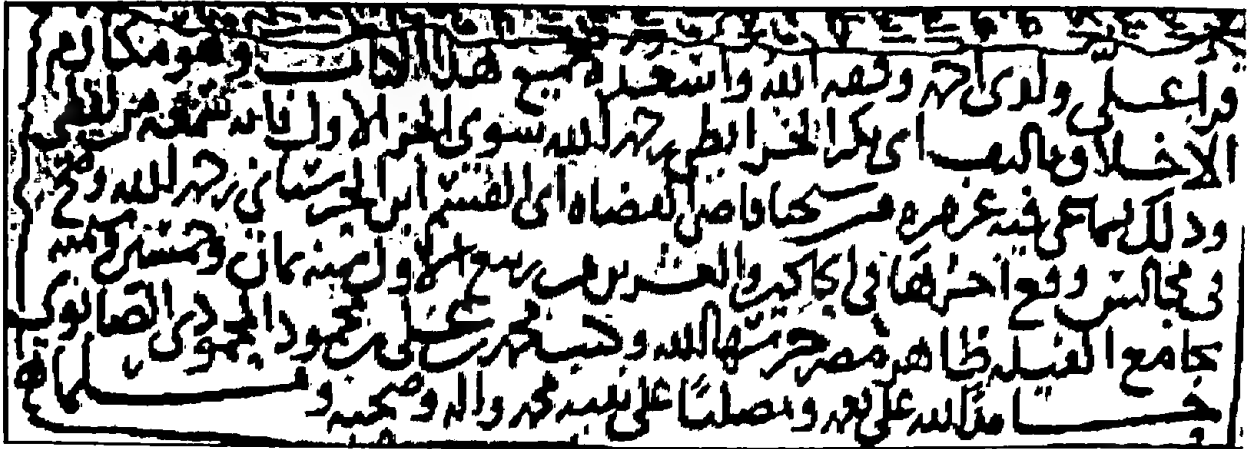 قرأ علي ولدي أحمد وفقه الله وأسعده جميع هذا الكتاب وهو مكارم
الأخلاق تأليف أبي بكر الخرائطي رحمه الله سوى الجزء الأول فإنه سمعه من لفظي
وذلك بسماعي فيه غير مرة من شيخنا قاضي القضاة أبي القسم ابن الحرستاني رحمه الله وصح
في مجالس وقع آخرها في الحادي والعشرين من ربيع الأول سنة ثمان وخمسين وستمئة
بجامع الفيلة ظاهر مصر حرسها الله وكتب محمد بن علي بن محمود المحمودي الصابوني
حامدًا لله على نعمه ومصليًا على نبيه محمد وآله وصحبه ومسلما